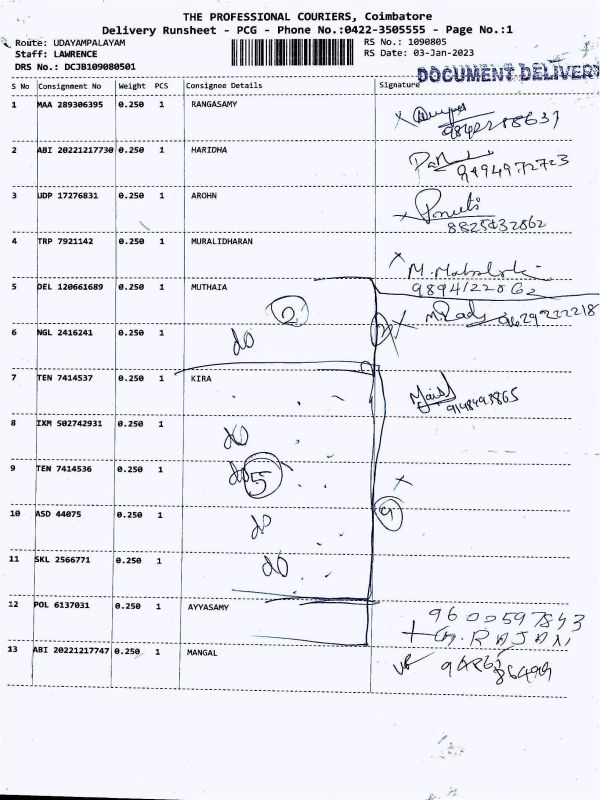 THE PROFESSIONAL COURIERS, Coimbatore
Delivery Runsheet - PCG - Phone No.:0422-3505555 - Page No.:1
Route: UDAYAMPALAYAM RS No.: 1090805
Staff: LAWRENCE RS Date: 03-Jan-2023
DRS No.: DCJB109080501
DOCUMENT DELIVERY
S No Consignment No Weight PCS Consignee Details Signature
1 MAA 289306395 0.250 1 RANGASAMY
2 ABI 20221217730 0.250 1 HARIDHA
3 UDP 17276831 0.250 1 AROHN
8825432862
4 TRP 7921142 0.250 1 MURALIDHARAN
5 DEL 120661689 0.250 1 MUTHAIA
9894122062
2
9629222218
6 NGL 2416241 0.250 1 do
7 TEN 7414537 0.250 1 KIRA
9148493865
8 IXM 502742931 0.250 1 do
9 TEN 7414536 0.250 1 do 5
10 ASD 44075 0.250 1 do
11 SKL 2566771 0.250 1 do
12 POL 6137031 0.250 1 AYYASAMY
9600597843
G. RAJAN
13 ABI 20221217747 0.250 1 MANGAL